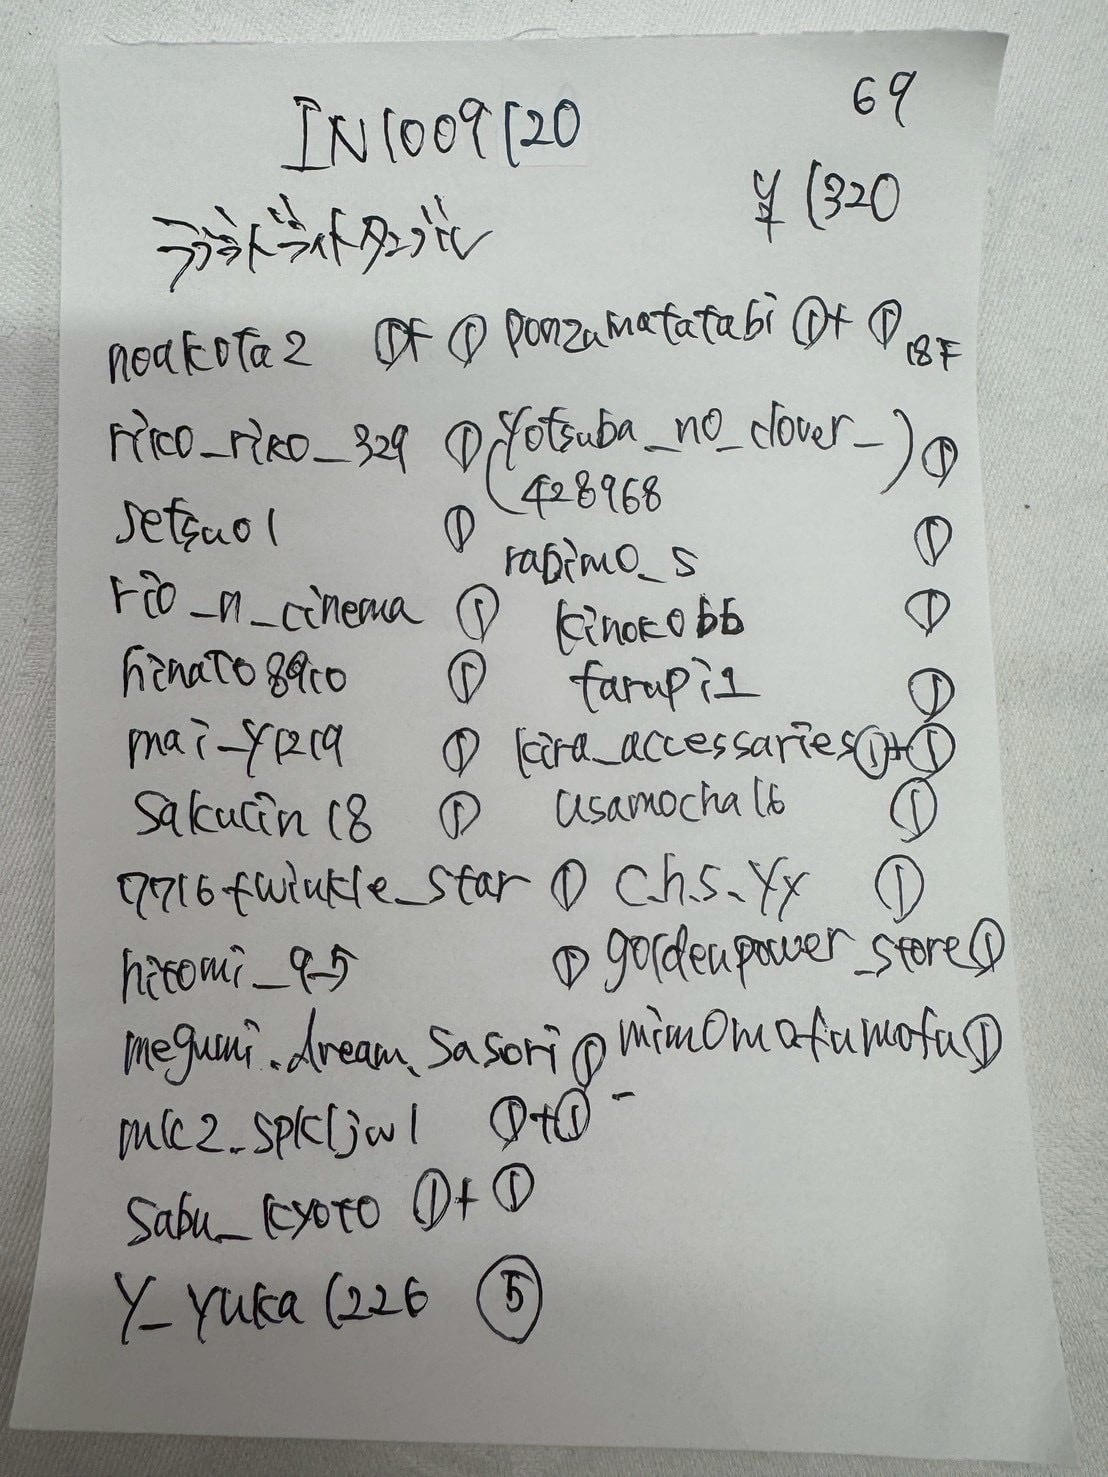 69
IN1009120
¥1320
noakota2 ①+① ponzumatatabi ①+① 18F
rico_riko_329 ① (yotsuba_no_clover_) ①
428968
setsuo1 ①
rabimo_s ①
rio_n_cinema ① kinoko66 ①
hinato8910 ① farupi1 ①
mai_y1219 ① kira_accessaries ①+①
sakurin18 ① usamocha16 ①
7716twinkle_star ① c.h.s._yy ①
hitomi_9_5 ① goldenpower_store ①
megumi.dream.sasori ① mimomofumofu ①
mk2_spkljwl ①+①
sabu_kyoto ①+①
Y_yuka1226 ⑤